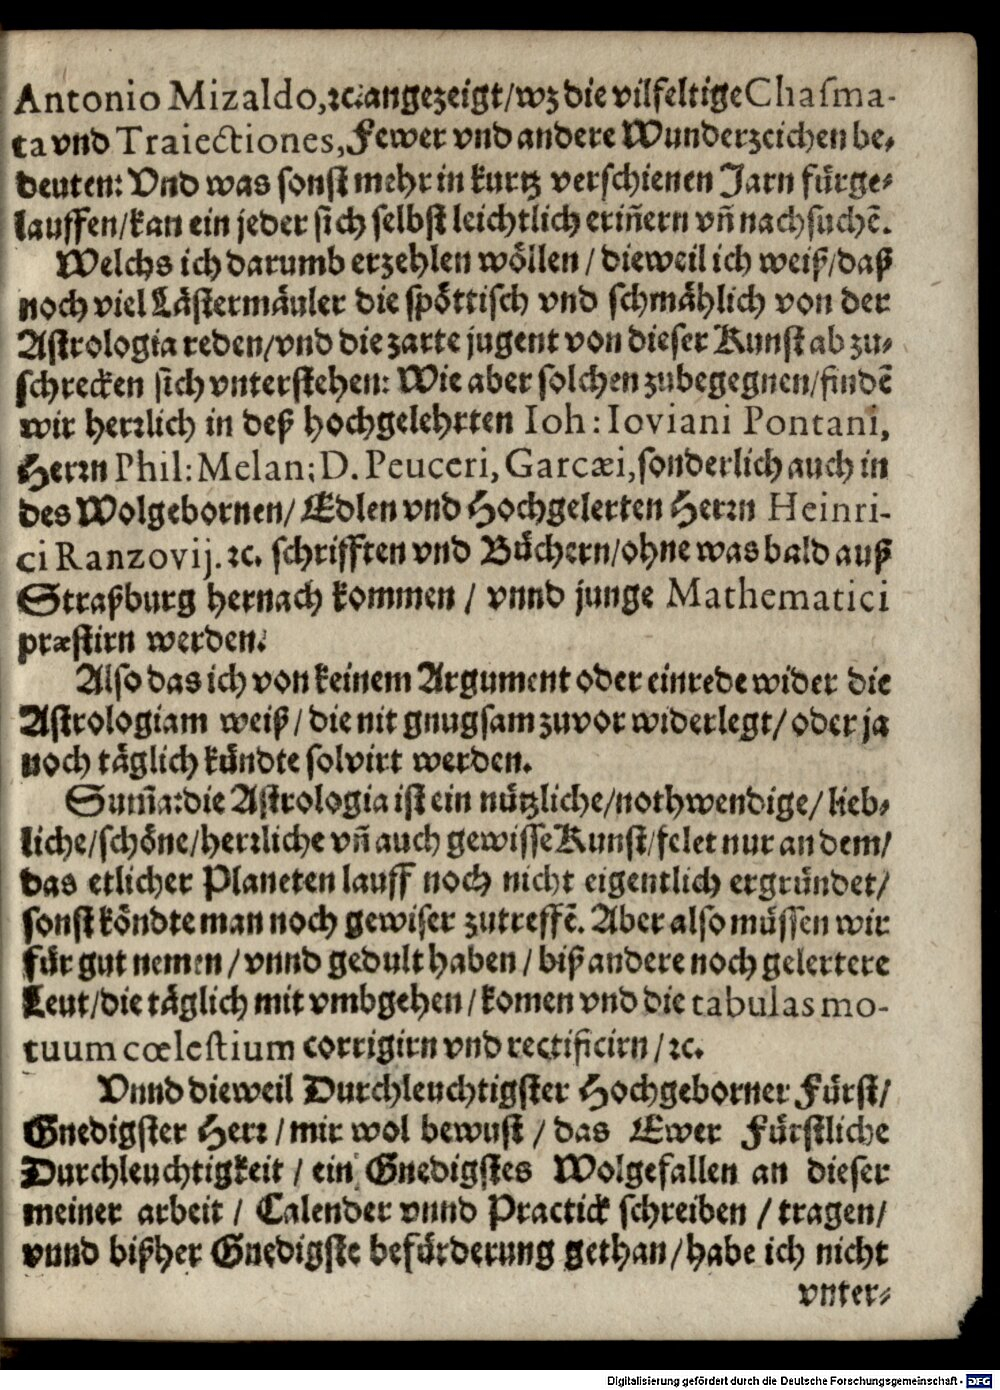 Antonio Mizaldo,ꝛc. angezeigt/wz die vilfeltige Chasma-
ta vnd Traiectiones, Fewer vnd andere Wunderzeichen be⸗
deuten: Vnd was sonst mehr in kurtz verschienen Jarn fürge⸗
lauffen/kan ein jeder sich selbst leichtlich eriñern vñ nachsuchẽ.
Welchs ich darumb erzehlen wöllen / dieweil ich weiß/daß
noch viel Lästermäuler die spöttisch vnd schmählich von der
Astrologia reden/vnd die zarte jugent von dieser Kunst ab zu⸗
schrecken sich vnterstehen: Wie aber solchen zubegegnen/findẽ
wir herꝛlich in deß hochgelehrten Ioh: Ioviani Pontani,
Herꝛn Phil: Melan: D. Peuceri, Garcæi, sonderlich auch in
des Wolgebornen/ Edlen vnd Hochgelerten Herꝛn Heinri-
ci Ranzovij. ꝛc. schrifften vnd Büchern/ohne was bald auß
Straßburg hernach kommen / vnnd junge Mathematici
præstirn werden.
Also das ich von keinem Argument oder einrede wider die
Astrologiam weiß/die nit gnugsam zuvor widerlegt/ oder ja
noch täglich kündte solvirt werden.
Sum̃a: die Astrologia ist ein nützliche/nothwendige/ lieb⸗
liche/schöne/herꝛliche vñ auch gewisse Kunst/felet nur an dem/
das etlicher Planeten lauff noch nicht eigentlich ergründet/
sonst köndte man noch gewiser zutreffẽ. Aber also müssen wir
für gut nemen / vnnd gedult haben / biß andere noch gelertere
Leut/die täglich mit vmbgehen / komen vnd die tabulas mo-
tuum cœlestium corrigirn vnd rectificirn / ꝛc.
Vnnd dieweil Durchleuchtigster Hochgeborner Fürst/
Gnedigster Herꝛ / mir wol bewust / das Ewer Fürstliche
Durchleuchtigkeit / ein Gnedigstes Wolgefallen an dieser
meiner arbeit / Calender vnnd Practick schreiben / tragen/
vnnd bißher Gnedigste befürderung gethan/habe ich nicht
vnter⸗
Digitalisierung gefördert durch die Deutsche Forschungsgemeinschaft - DFG